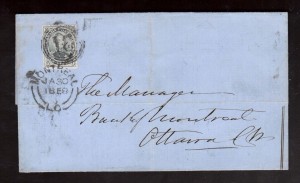 MONTREAL
JA 30
186
The Manager
Bank of Montreal
Ottawa C.W.